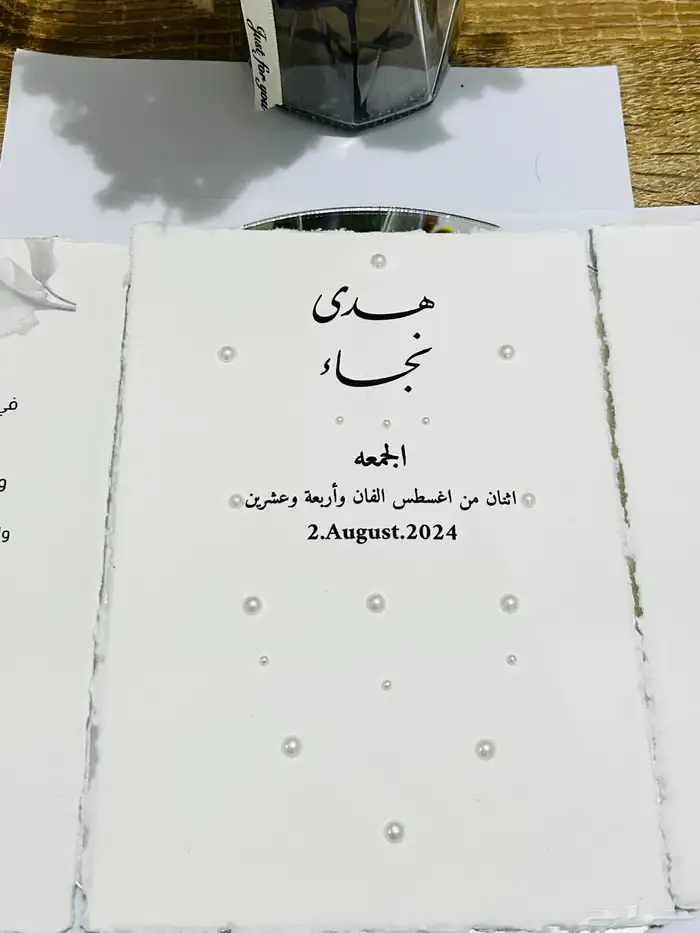 Just for you
هدى
نجاء
الجمعه
اثنان من اغسطس الفان وأربعة وعشرين
2.August.2024
في
و
وا
حراج